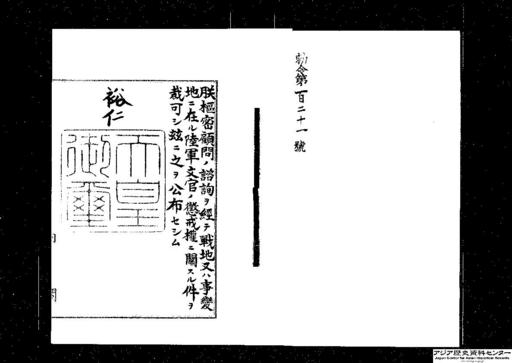 勅令第百二十一號
朕樞密顧問ノ諮詢ヲ經テ戰地又ハ事變
地ニ在ル陸軍文官ノ懲戒權ニ關スル件ヲ
裁可シ玆ニ之ヲ公布セシム
裕仁
天皇
御璽
アジア歴史資料センター
Japan Center for Asian Historical Records